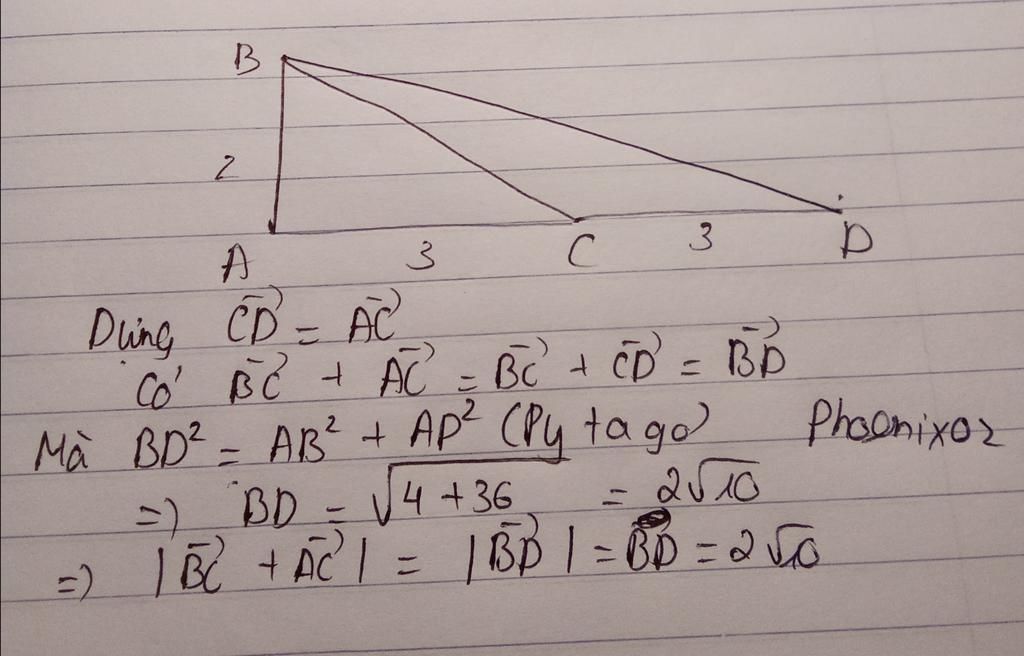 B
2
A 3 C 3 D
Dựng \(\overrightarrow{CD} = \overrightarrow{AC}\)
Có \(\overrightarrow{BC} + \overrightarrow{AC} = \overrightarrow{BC} + \overrightarrow{CD} = \overrightarrow{BD}\)
Mà \(BD^2 = AB^2 + AD^2\) (Py ta go) Phoenixor
=) \(BD = \sqrt{4 + 36} = 2\sqrt{10}\)
=) \(|\overrightarrow{BC} + \overrightarrow{AC}| = |\overrightarrow{BD}| = BD = 2\sqrt{10}\)